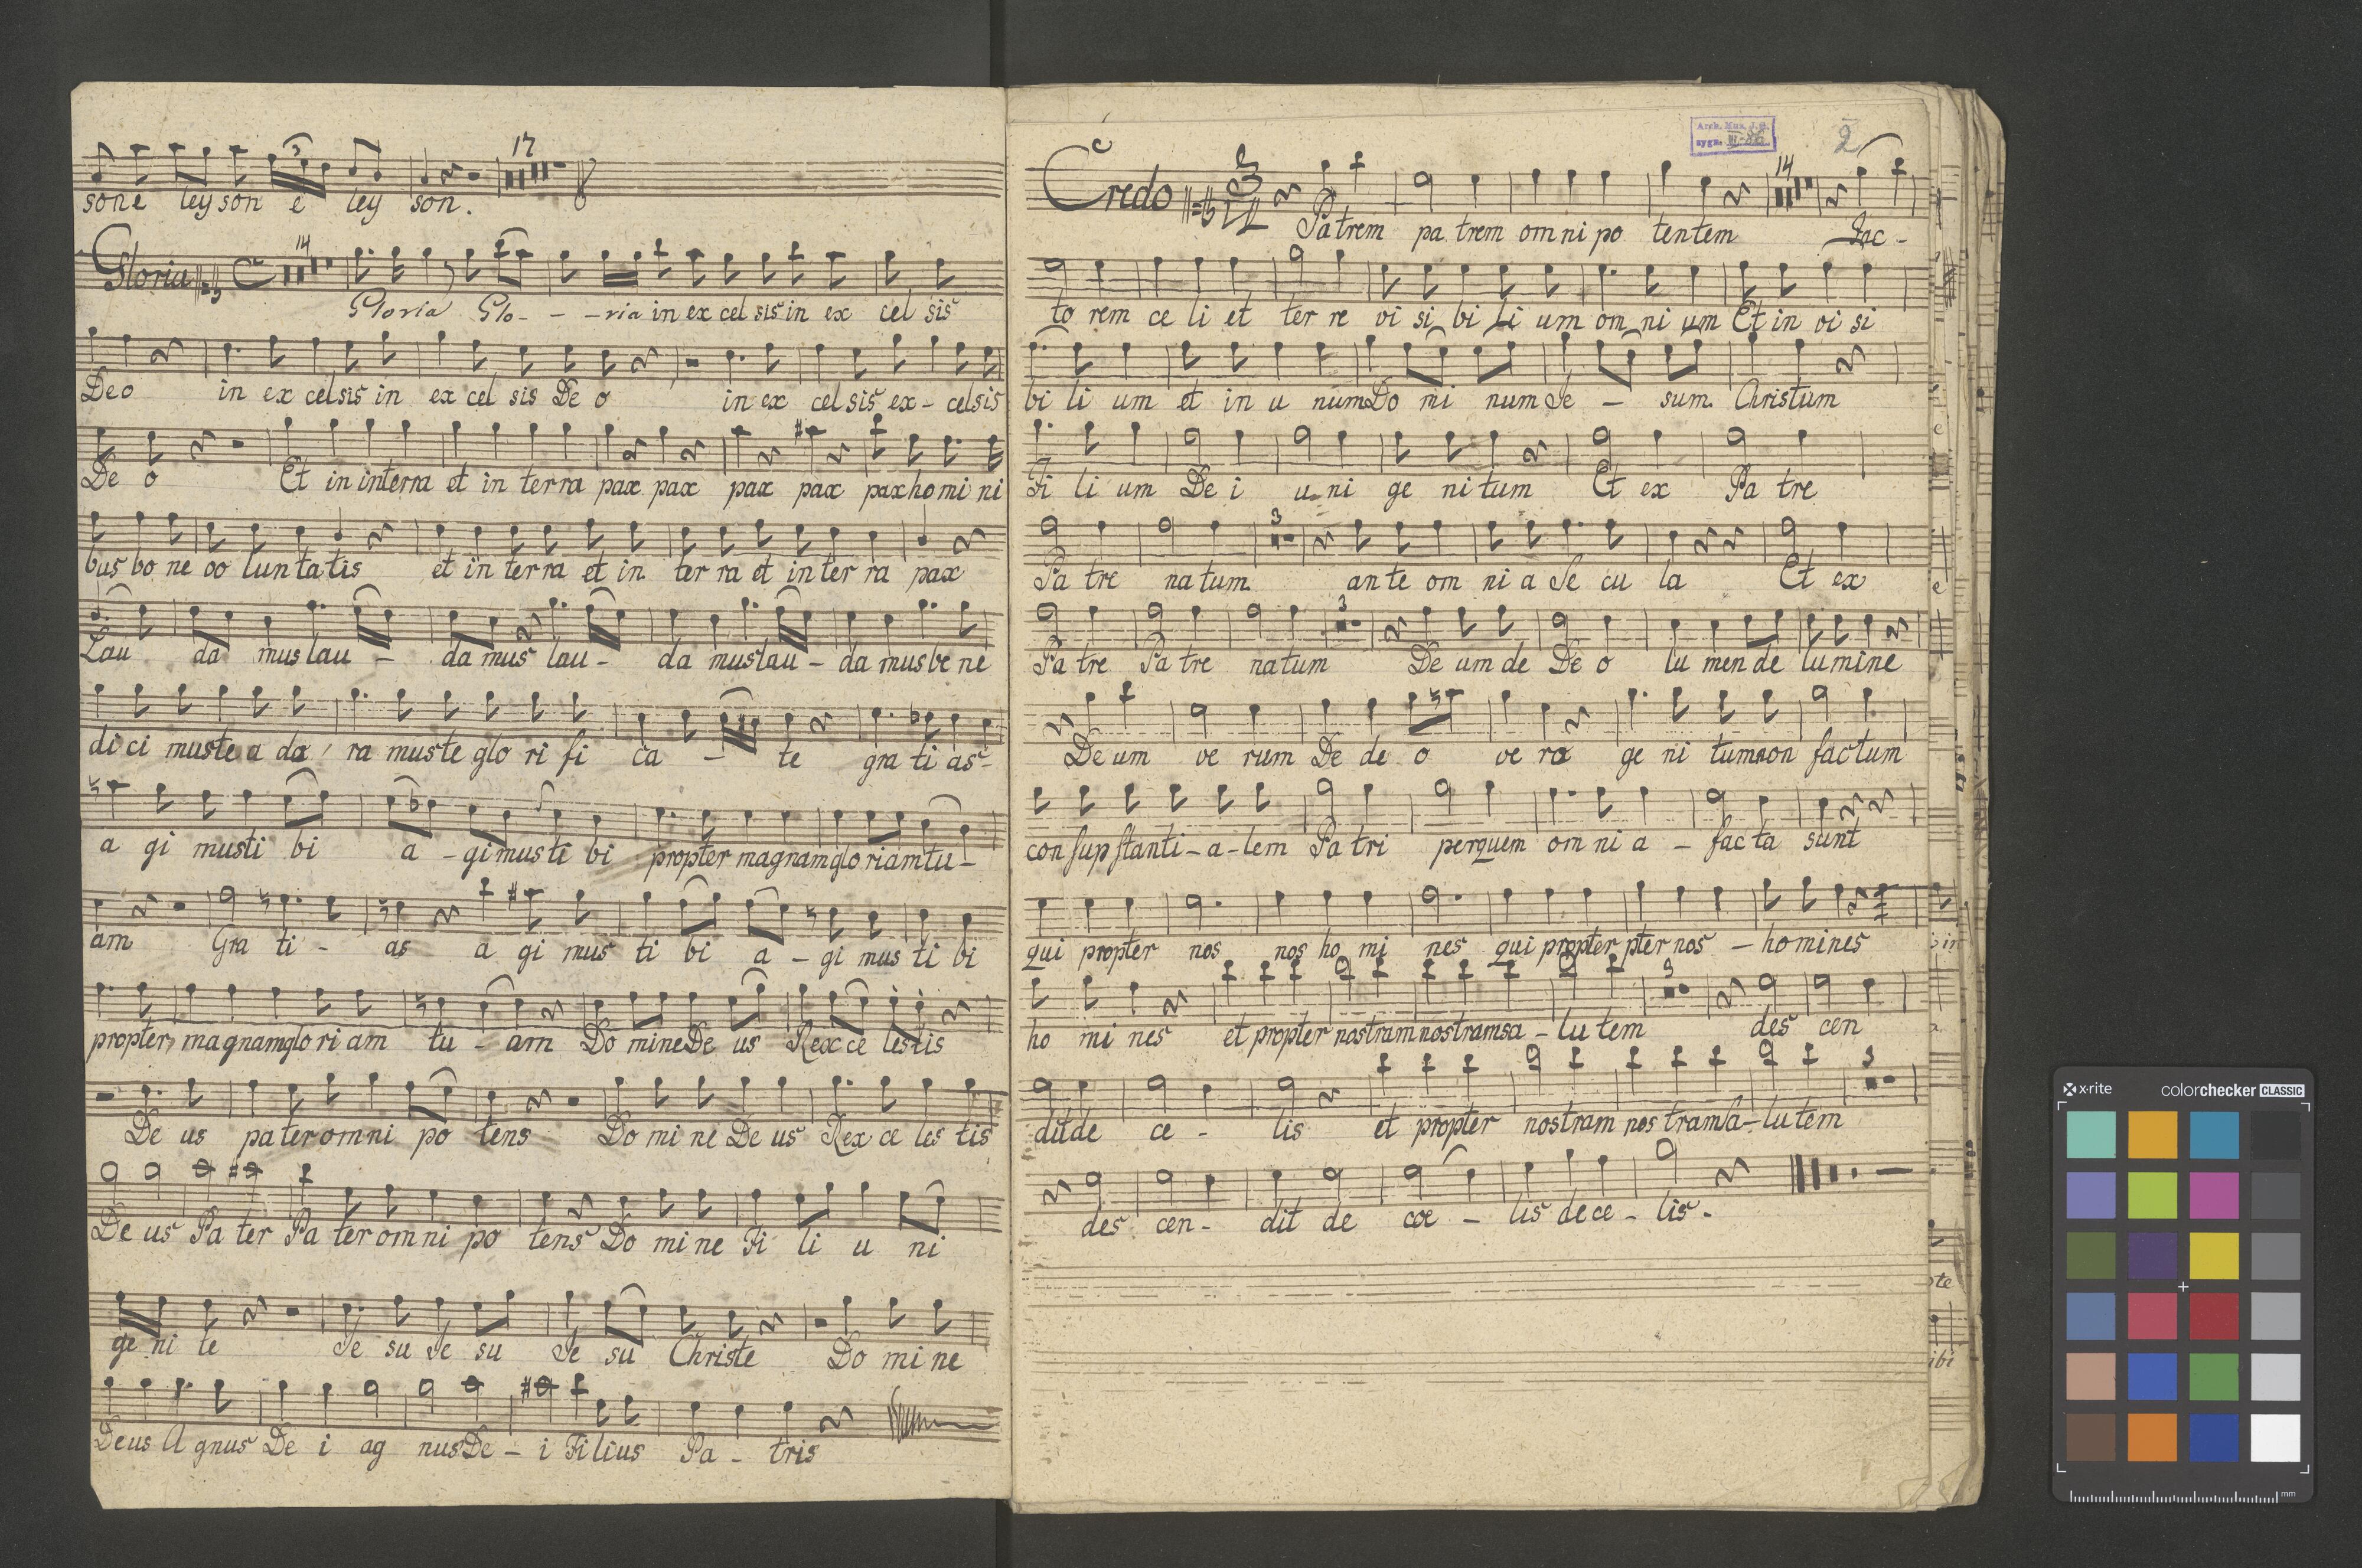 17
sone ley son e ley son.
3
Gloria C 14
Gloria Glo - - - ria in ex cel sis in ex cel sis
Deo in ex celsis in ex cel sis De o in ex cel sis ex - celsis
De o Et in interra et in terra pax pax pax pax pax ho mi ni
bus bo ne vo lun ta tis et in ter ra et in ter ra et in ter ra pax
Lau da mus lau - da mus lau - da mus lau - da mus be ne
di ci mus te a da ra mus te glo ri fi ca - te gra ti as -
a gi mus ti bi a - gi mus ti bi propter magnam gloriam tu -
am Gra ti - as a gi mus ti bi a - gi mus ti bi
propter magnam glo ri am tu - am Do mine De us Rex ce les tis
De us pa ter om ni po tens Do mi ne De us Rex ce les tis
De us Pa ter Pa ter om ni po tens Do mi ne Fi li u ni
ge ni te Je su Je su Je su Christe Do mi ne
Deus A gnus De i ag nus De - i Filius Pa - tris
Arch. Mus. J.G.
sygn. III-86
2
Credo 3 14
Patrem pa trem om ni po tentem Fac -
to rem ce li et ter re vi si bi li um om ni um Et in vi si
bi li um et in u num Do mi num Je - sum Christum
Fi li um De i u - ni ge ni tum Et ex Pa tre
3
Pa tre na tum. an te om ni a Se cu la Et ex
3
Pa tre Pa tre na tum De um de De o lu men de lu mine
De um ve rum De de o ve ro ge ni tum non factum
con sup stanti - a - lem Pa tri per quem om ni a - fac ta sunt
qui propter nos nos ho mi nes qui propter pter nos - ho mi nes
3
ho mi nes et propter nostram nostram sa - lu tem des cen
3
dit de ce - lis et propter nostram nos tram sa - lu tem
des cen - dit de coe - lis de ce - lis.
x-rite colorchecker CLASSIC
mm